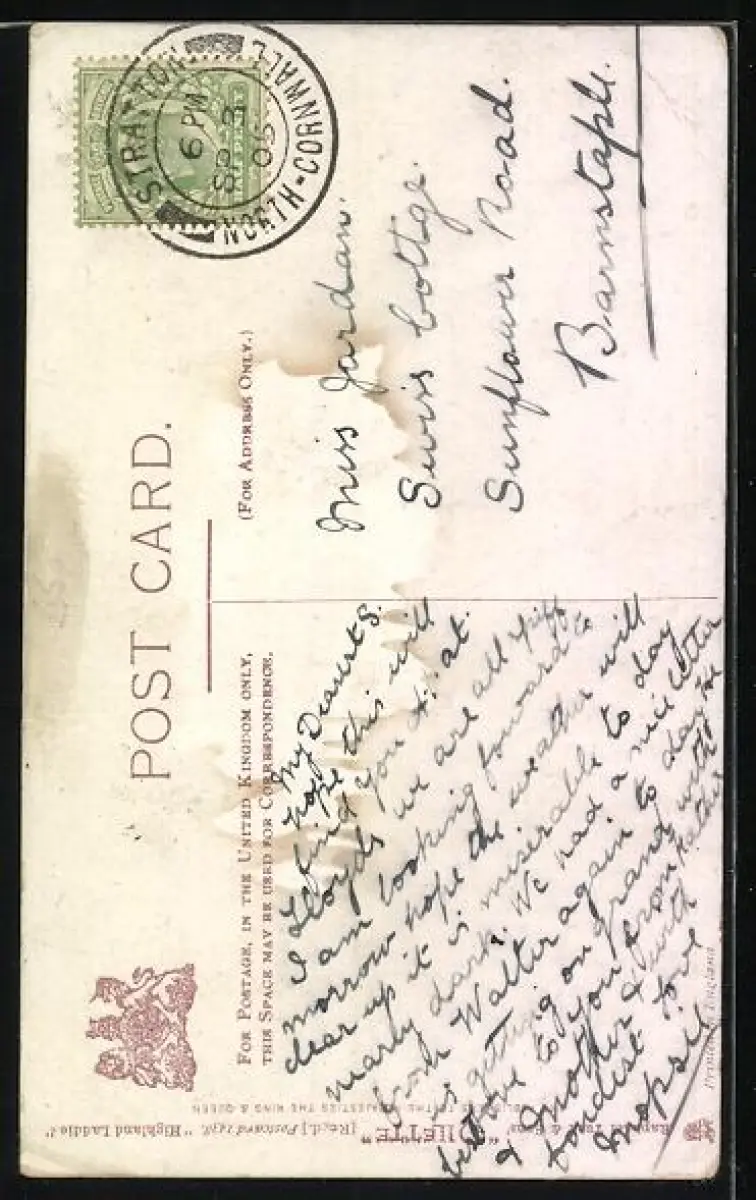 POST CARD.
FOR POSTAGE, IN THE UNITED KINGDOM ONLY,
THIS SPACE MAY BE USED FOR CORRESPONDENCE.
(FOR ADDRESS ONLY.)
STRATTON
NORTH-CORNWALL
6 PM
SP 3
06
My Dearest S.
I hope this will
find you A.1 at
Lloyds we are all
I am looking forward to
morrow hope the weather will
clear up it is miserable to day
nearly dark. We had a nice letter
from Walter again to day he
is getting on grand with
best love to you from
& Mother & with
fondest love
Mopsie
Miss Jardan.
Swiss Cottge.
Sunflower Road.
Barnstaple.
Raphael Tuck & Sons' "OILETTE" [Regd.] Postcard 1497. "Highland Laddie."
TO THEIR MAJESTIES THE KING & QUEEN
Printed in England